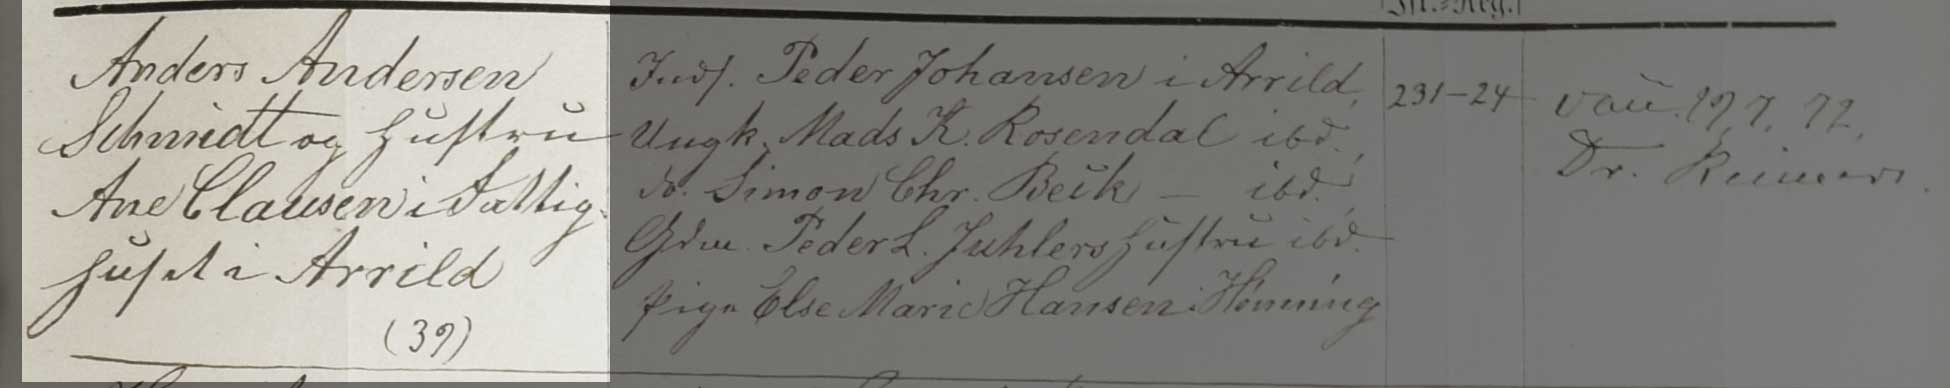 Jst.-Reg.
Anders Andersen
Schmidt og Hustru
Ane Clausen i Fattig-
huset i Arrild
(39)
Inds. Peder Johansen i Arrild,
Ungk. Mads K. Rosendal ibd.,
do. Simon Chr. Beik — ibd.,
Gdm. Peder L. Juhlers Hustru ibd.
Pige Else Marie Hansen i Hønning
231-24
vac. 19, 7, 72,
Dr. Reimers.